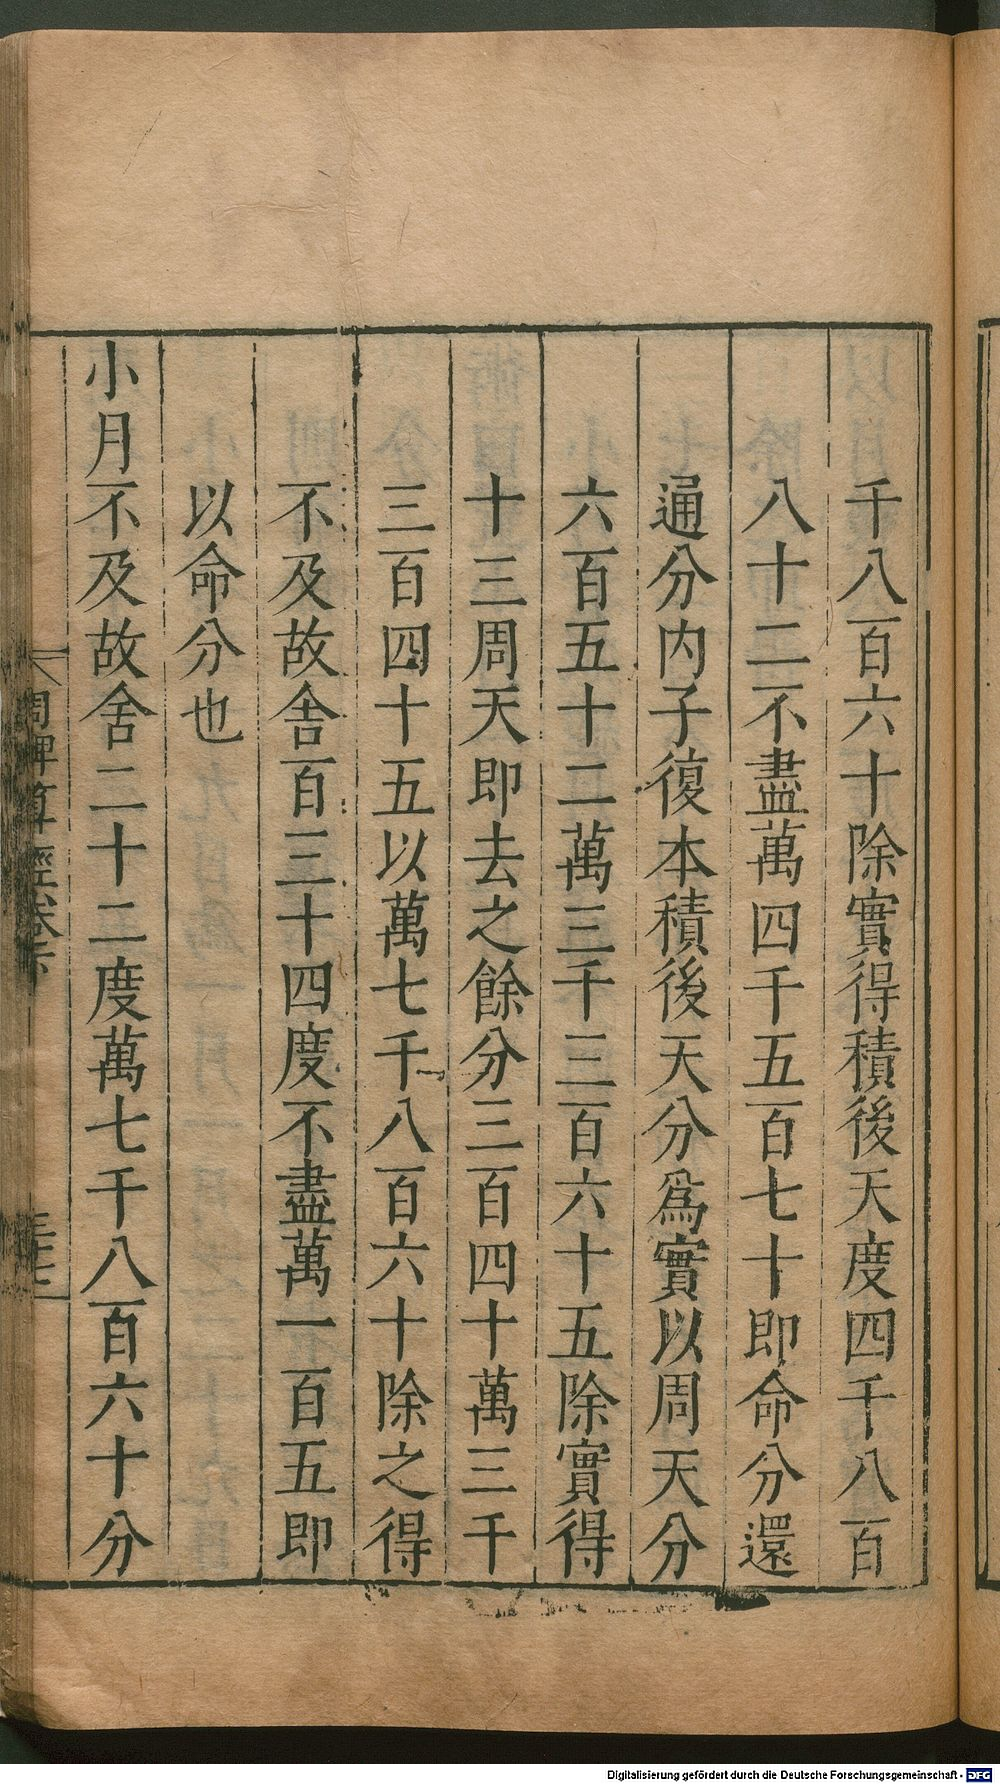 千八百六十除實得積後天度四千八百
八十二不盡萬四千五百七十即命分還
通分内子復本積後天分爲實以周天分
六百五十二萬三千三百六十五除實得
十三周天即去之餘分三百四十萬三千
三百四十五以萬七千八百六十除之得
不及故舍百三十四度不盡萬一百五即
以命分也
小月不及故舍二十二度萬七千八百六十分
周髀算經卷下
三十七
Digitalisierung gefördert durch die Deutsche Forschungsgemeinschaft - DFG